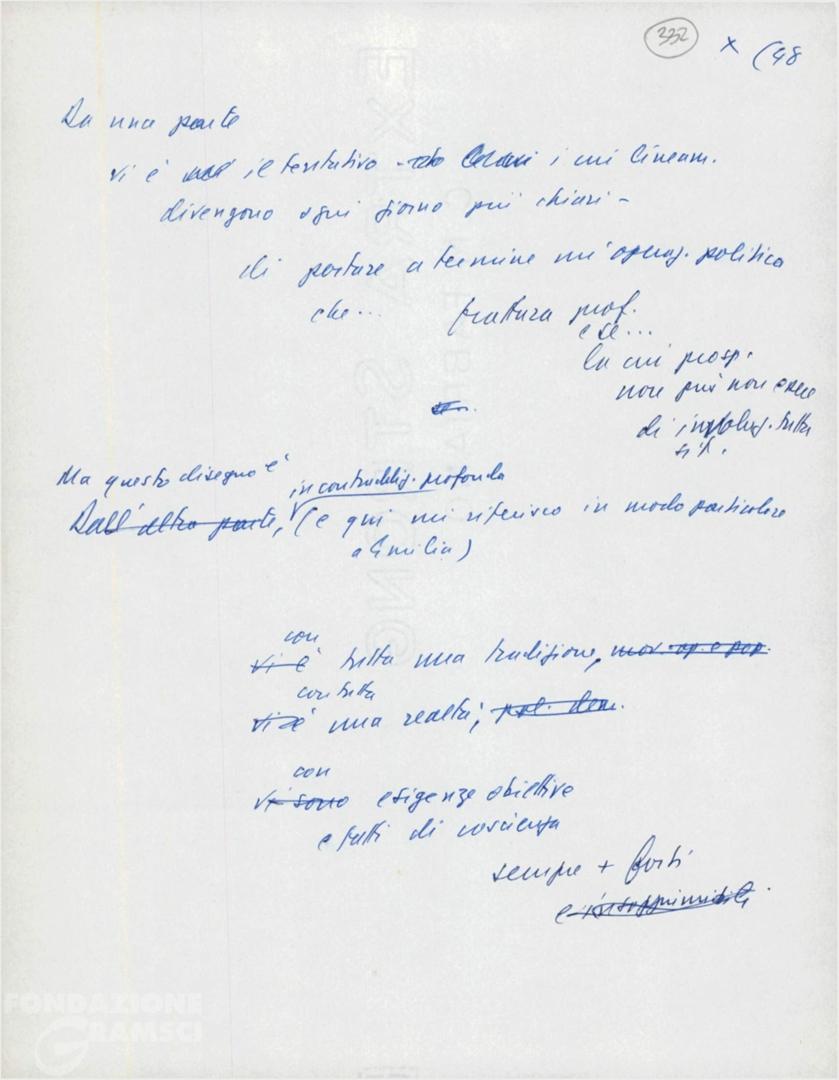 332 x (48
Da una parte
vi è il tentativo - i cui lineam.
divengono ogni giorno più chiari -
di portare a termine un'operaz. politica
che... frattura prof.
e se...
la cui prosp.
non può non essere
di tutta
sit.
Ma questo disegno è
in contraddiz. profonda
Dall'altra parte, (e qui mi riferisco in modo particolare
a Emilia)
con
vi è tutta una tradizione, mov. op. e pop.
con tutta
vi è una realtà, pol. dem.
con
vi sono esigenze obiettive
e fatti di coscienza
sempre + forti
e insopprimibili
FONDAZIONE
GRAMSCI
EXTRA STRONG